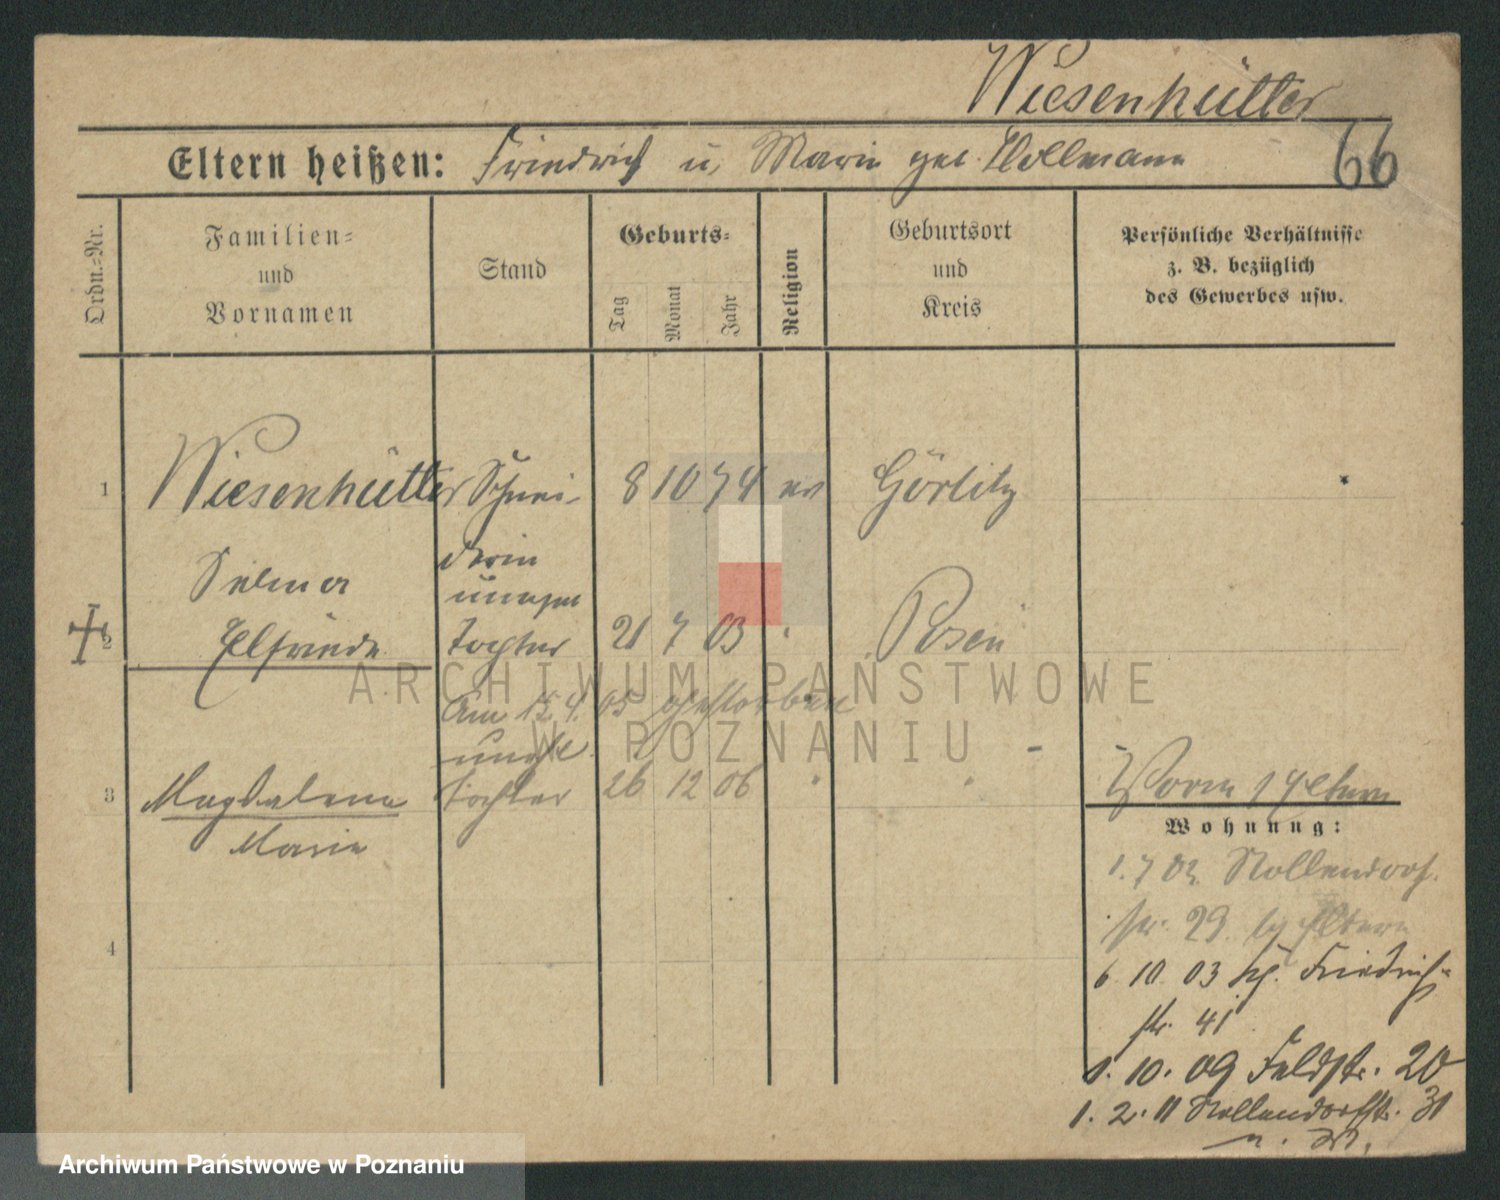 Wiesenhütter
Eltern heißen: Friedrich u. Marie geb. Hollmann
66
Ordn.-Nr.
Familien- und Vornamen
Stand
Geburts-
Tag
Monat
Jahr
Religion
Geburtsort und Kreis
Persönliche Verhältnisse
z. B. bezüglich
des Gewerbes usw.
1 Wiesenhütter Schnei- 8 10 74 ev Görlitz
derin
Selma
unehel
2 Elfriede Tochter 21 7 03 " Posen
Am 15.4.05 gestorben
unehl.
3 Magdalena Tochter 26 12 06 " "
Marie
4
Vorm 1 Eltern
Wohnung:
1.7 02 Nollendorf-
str. 29 b/ Eltern
6 10 03 Friedrich-
str. 41
1. 10. 09 Feldstr. 20
1. 2. 11 Nollendorfstr. 31
ARCHIWUM PAŃSTWOWE
W POZNANIU
Archiwum Państwowe w Poznaniu